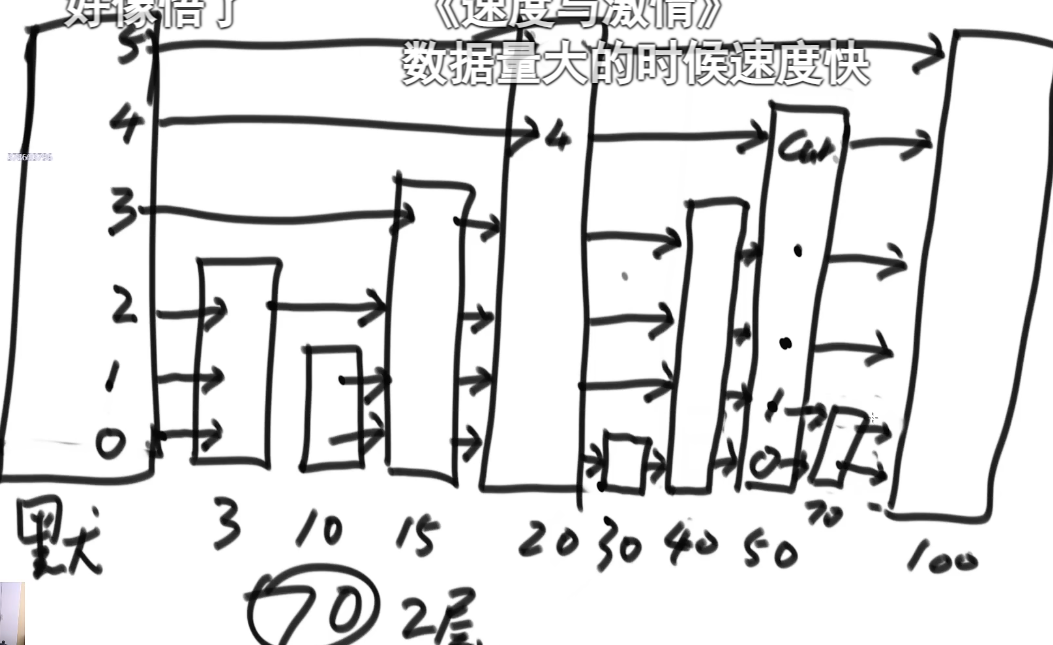 好像悟了
《速度与激情》
数据量大的时候速度快
5
4 4 cur
3
2
1 1
0 0
默认 3 10 15 20 30 40 50 70 100
70 2层